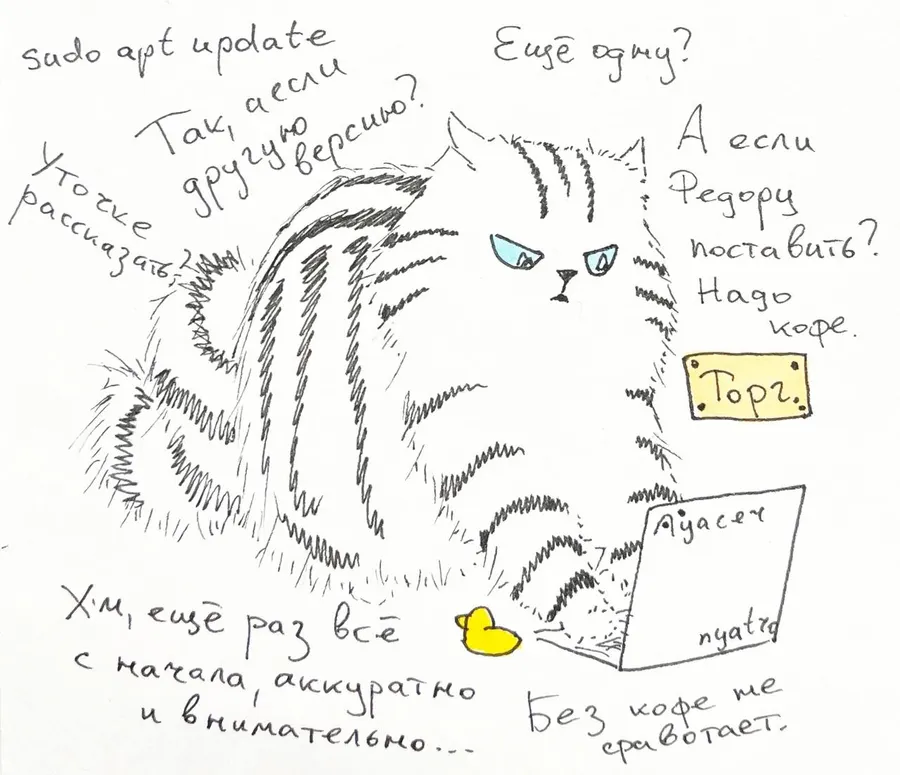 sudo apt update
Ещё одну?
Так, а если
другую
версию?
Уточке
рассказать?
А если
Федору
поставить?
Надо
кофе.
Торг.
nyatra
Хм, ещё раз всё
с начала, аккуратно
и внимательно...
Без кофе не
сработает.